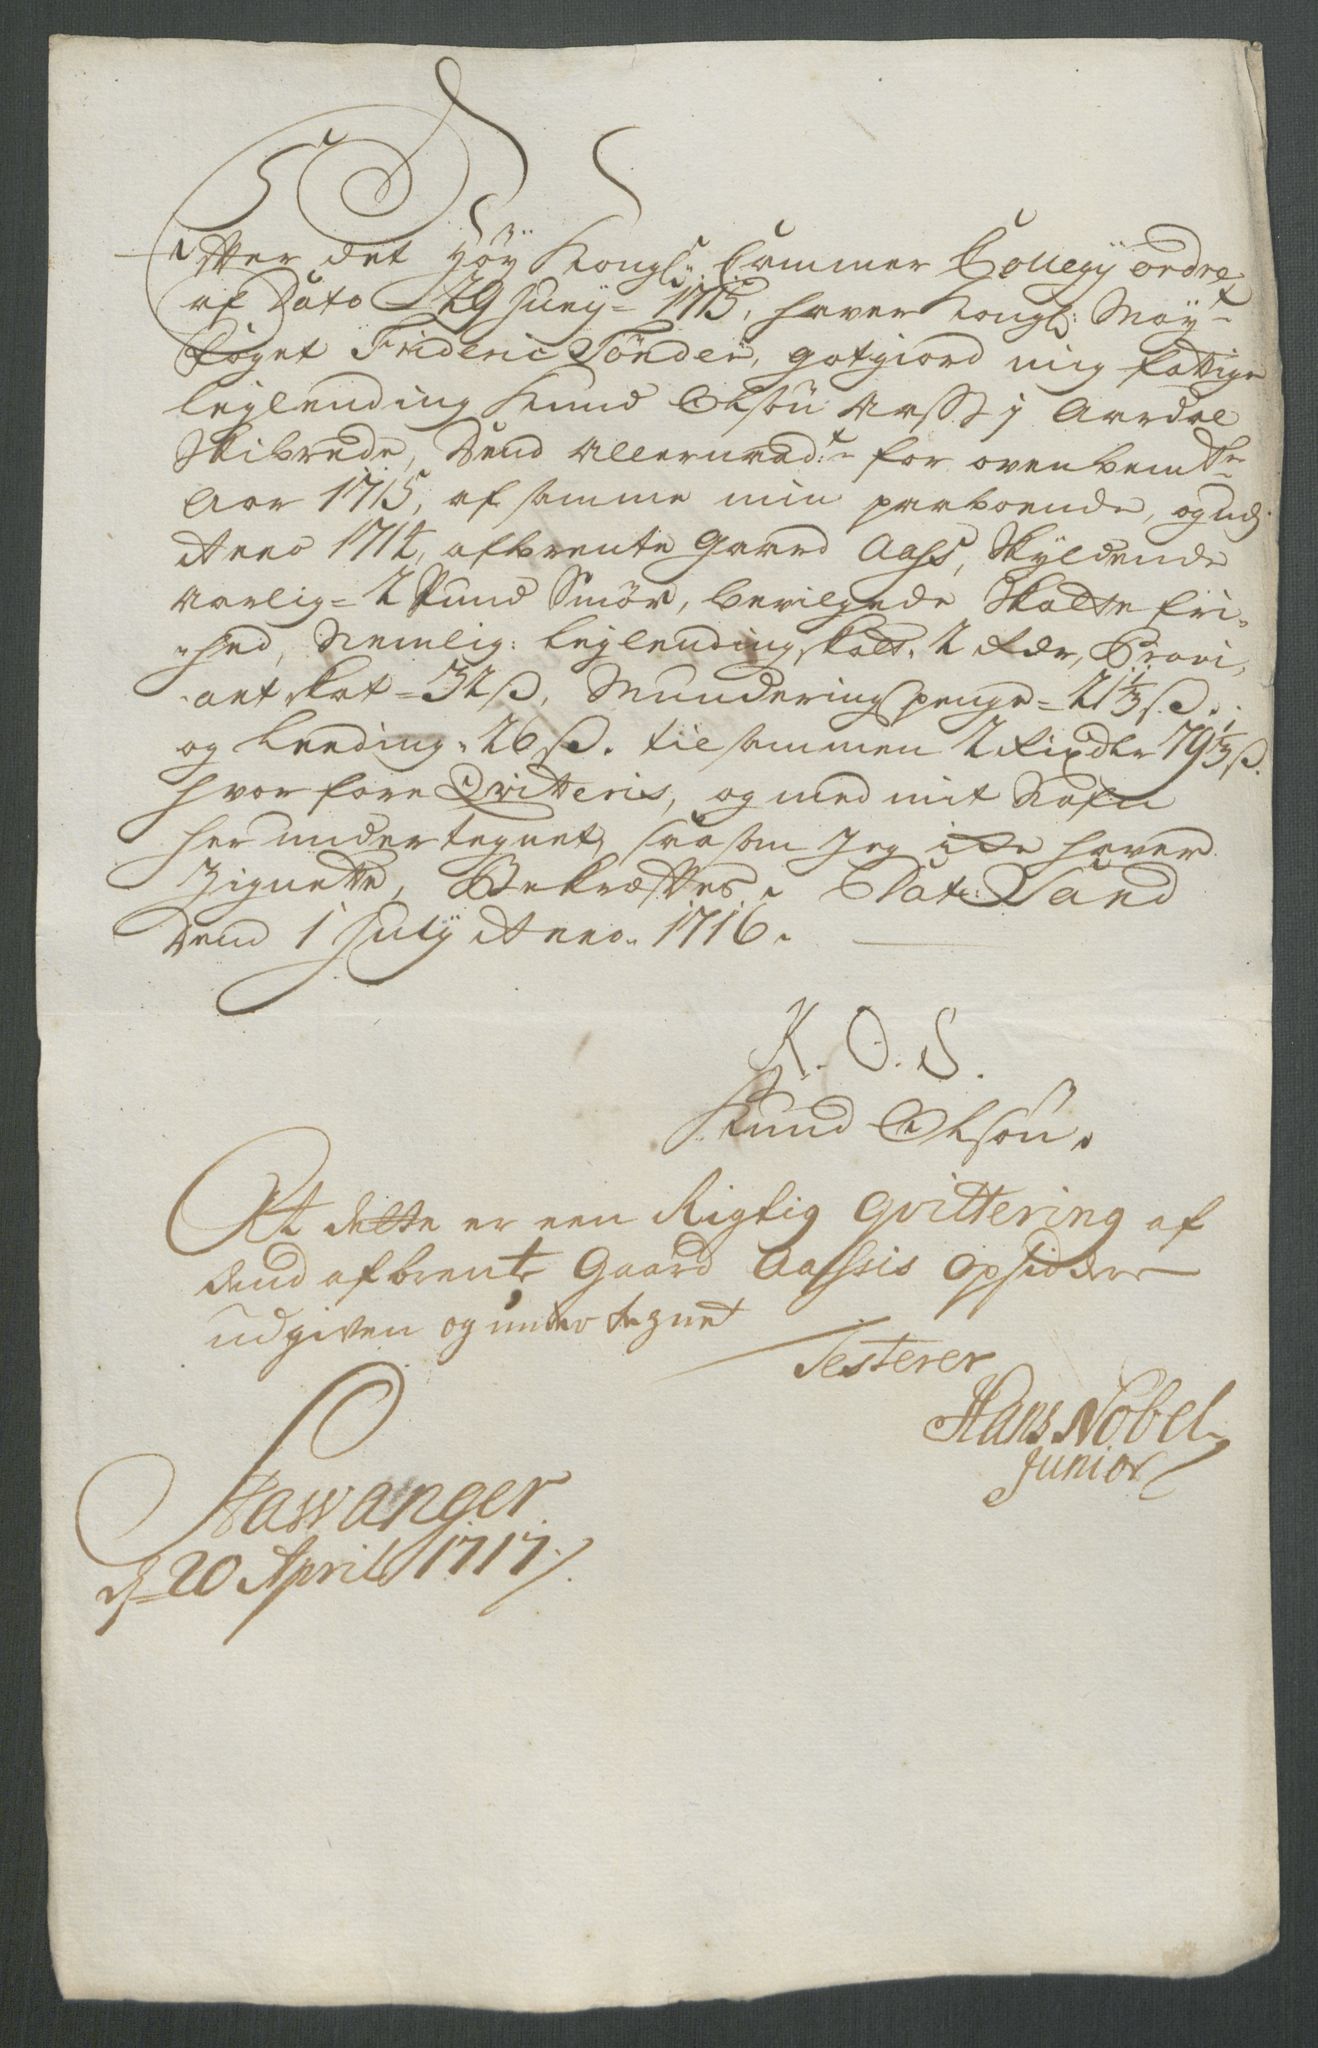 Efter det Høy Kongl: Cammer Collegy ordre
af Dato 29 Juny 1715, haver Kongl: May:ts
foget Frideric Tønder, gotgiord mig fattige
leylending Knud Olsøn Aass i Aardal
Skibrede, Dend Allernaad:te for ovenbemte
Aar 1715, af samme min paaboende, og udj
Anno 1714, afbrente Gaard Aass, Skyldende
Aarlig = 2 Pund Smør, bevilgede Skatte fri-
-hed, Nemlig: leylending skatt, 2 rdr, Provi-
-ant skat = 32 ß, Munderings penge = 21⅓ ß.
og Leeding, 26 ß. tilsammen 2 rixdlr 79⅓ ß.
hvorfore Qvitteris, og med mit Nafn
her undertegnet, saasom Jeg icke haver
Zignette, Bekræfftes. Dat: Sand
Dend 1 July Anno 1716.
K. O. S.
Knud Olsøn.
At dette er een Rigtig qvittering af
dend afbrente Gaard Aassis opsidder
udgiven og undertegnet
Testerer
Hans Nobel
Junior
Stawanger
d. 20 April 1717.